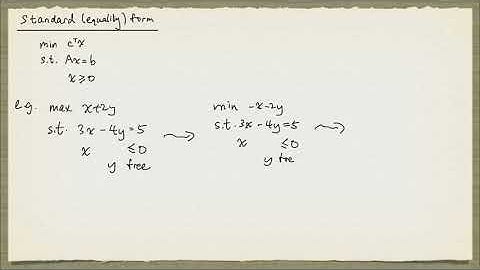 Standard (equality) form
min cᵀx
s.t. Ax=b
x≥0
e.g. max x+2y
s.t. 3x-4y=5
x ≤0
y free
min -x-2y
s.t. 3x-4y=5
x ≤0
y fre